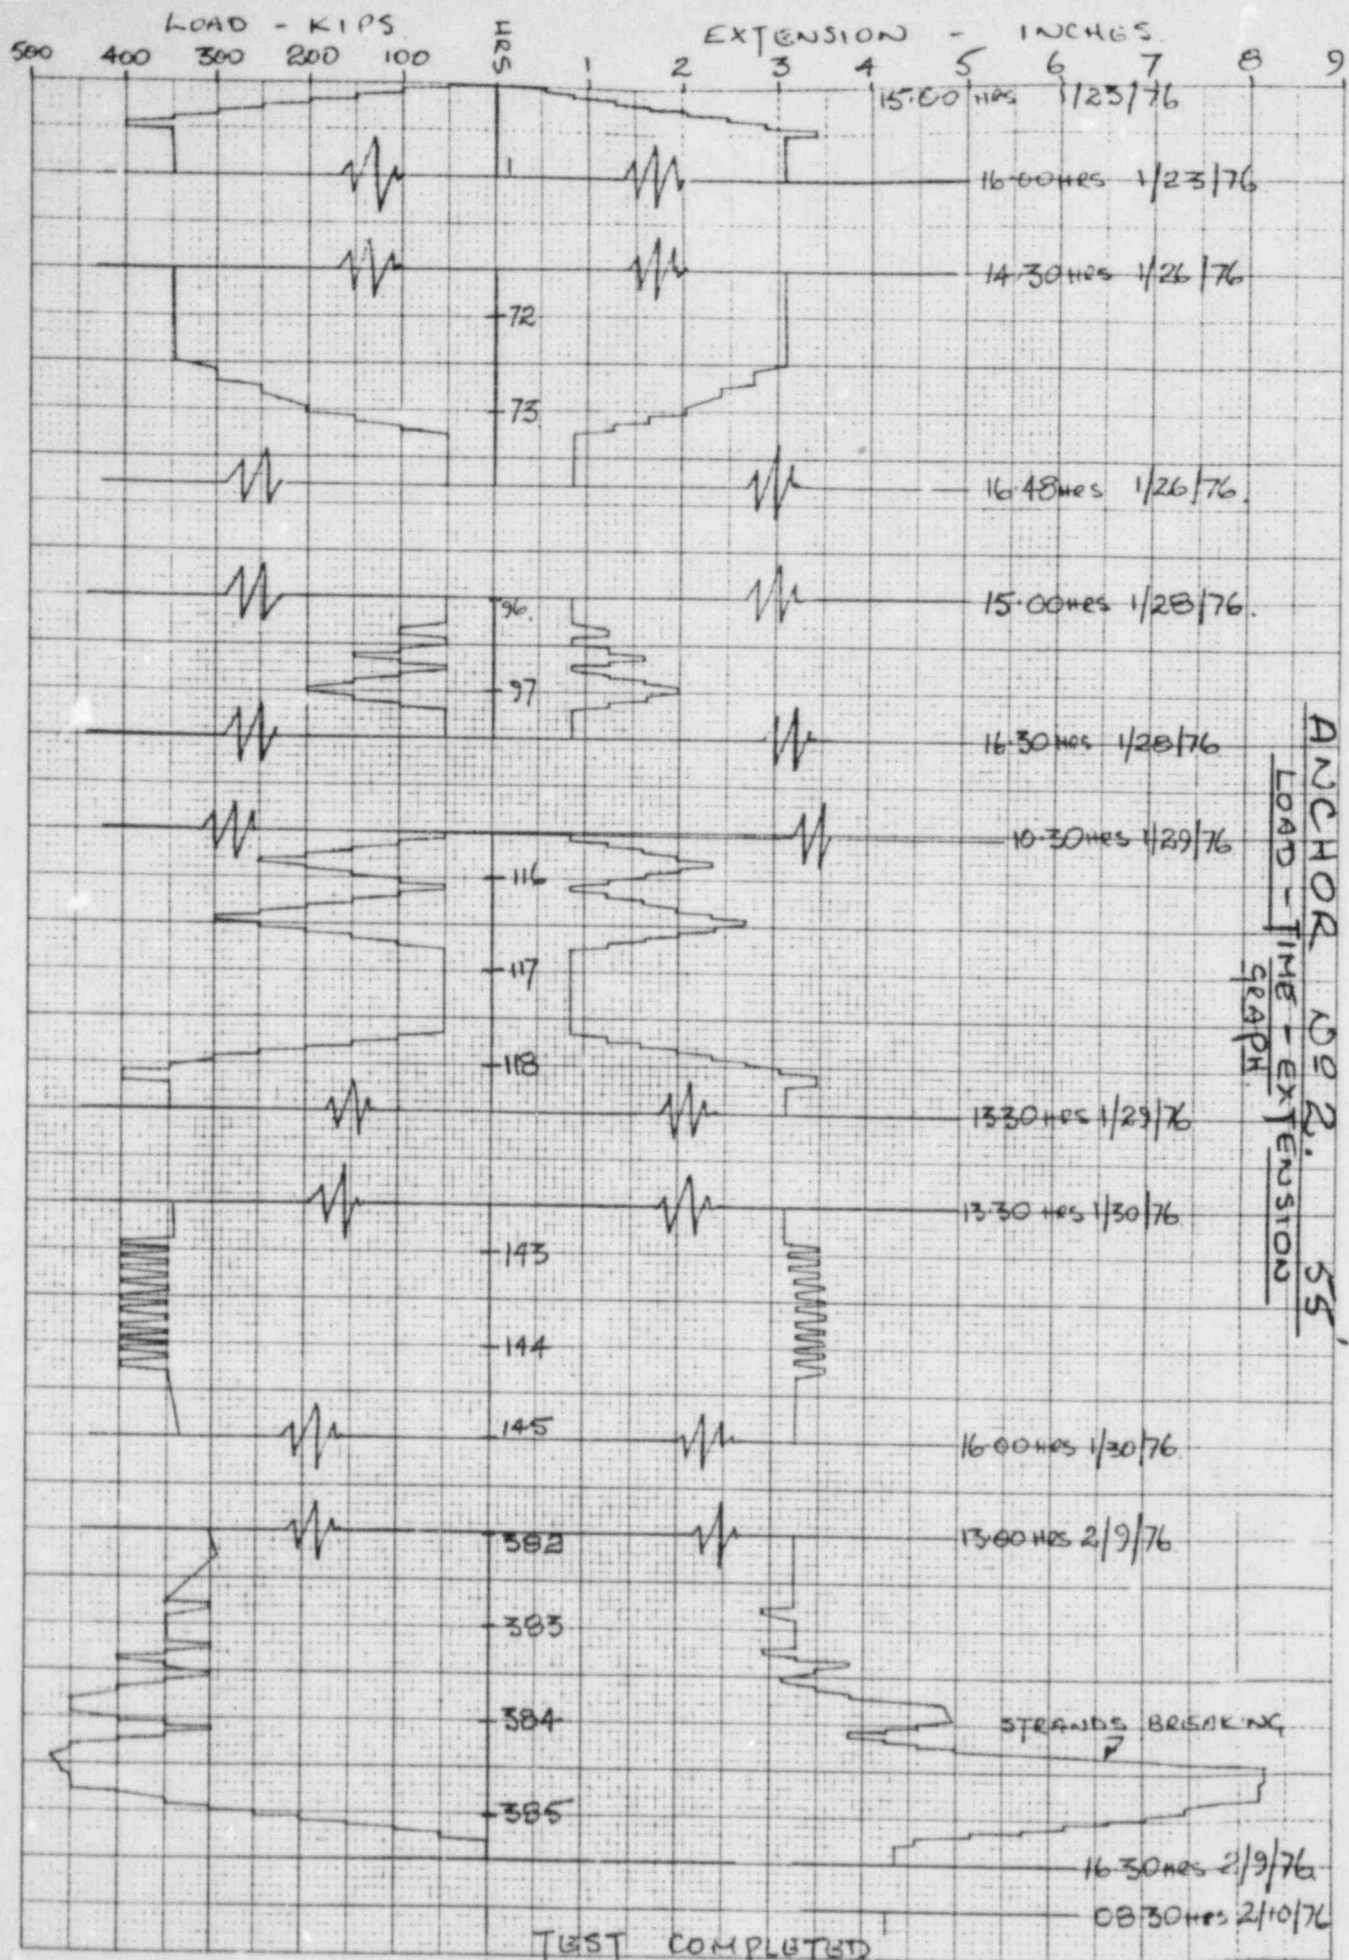 LOAD - KIPS.
EXTENSION - INCHES.
500 400 300 200 100 HRS 1 2 3 4 5 6 7 8 9
15.00 HRS 1/23/76
1
16.00 HRS 1/23/76
14.30 HRS 1/26/76
72
73
16.48 HRS 1/26/76.
96
15.00 HRS 1/28/76.
97
16.30 HRS 1/28/76
10.30 HRS 1/29/76
116
117
118
13.30 HRS 1/29/76
13.30 HRS 1/30/76
143
144
145
16.00 HRS 1/30/76.
382
13.00 HRS 2/9/76
383
384
STRANDS BREAKING
385
16.30 HRS 2/9/76
08.30 HRS 2/10/76
TEST COMPLETED
ANCHOR Nº 2. 55'
LOAD - TIME - EXTENSION
GRAPH